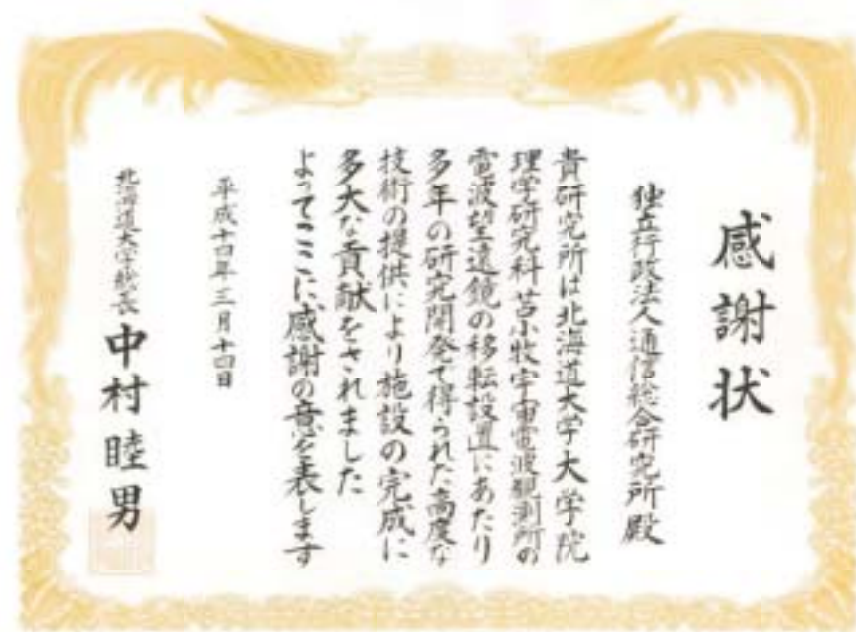 感謝状
独立行政法人通信総合研究所殿
貴研究所は北海道大学大学院
理学研究科苫小牧宇宙電波観測所の
電波望遠鏡の移転設置にあたり
多年の研究開発で得られた高度な
技術の提供により施設の完成に
多大な貢献をされました
よってここに感謝の意を表します
平成十四年三月十四日
北海道大学総長 中村睦男